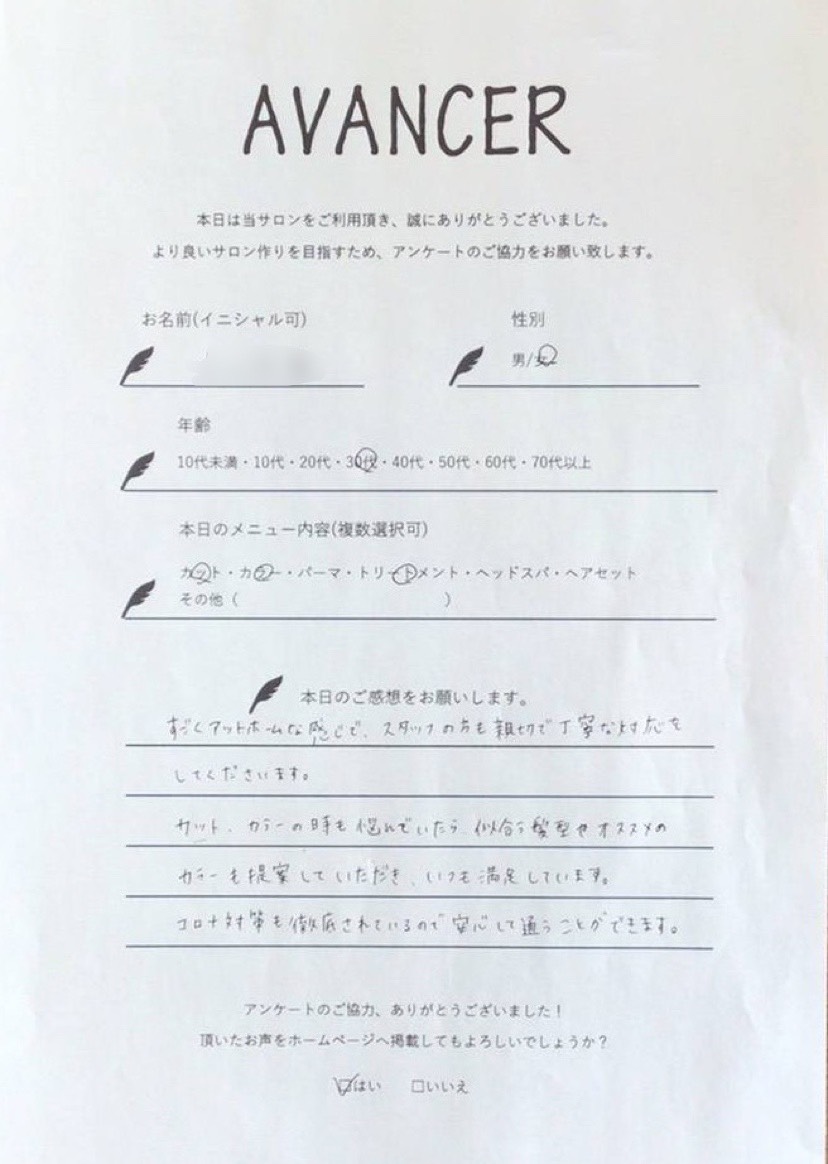 AVANCER
本日は当サロンをご利用頂き、誠にありがとうございました。
より良いサロン作りを目指すため、アンケートのご協力をお願い致します。
お名前(イニシャル可)
性別
男/女
年齢
10代未満・10代・20代・30代・40代・50代・60代・70代以上
本日のメニュー内容(複数選択可)
カット・カラー・パーマ・トリートメント・ヘッドスパ・ヘアセット
その他（ ）
本日のご感想をお願いします。
すごくアットホームな感じで、スタッフの方も親切で丁寧な対応を
してくださいます。
カット、カラーの時も悩んでいたら、似合う髪型やオススメの
カラーも提案していただき、いつも満足しています。
コロナ対策も徹底されているので安心して通うことができます。
アンケートのご協力、ありがとうございました！
頂いたお声をホームページへ掲載してもよろしいでしょうか？
☑はい □いいえ